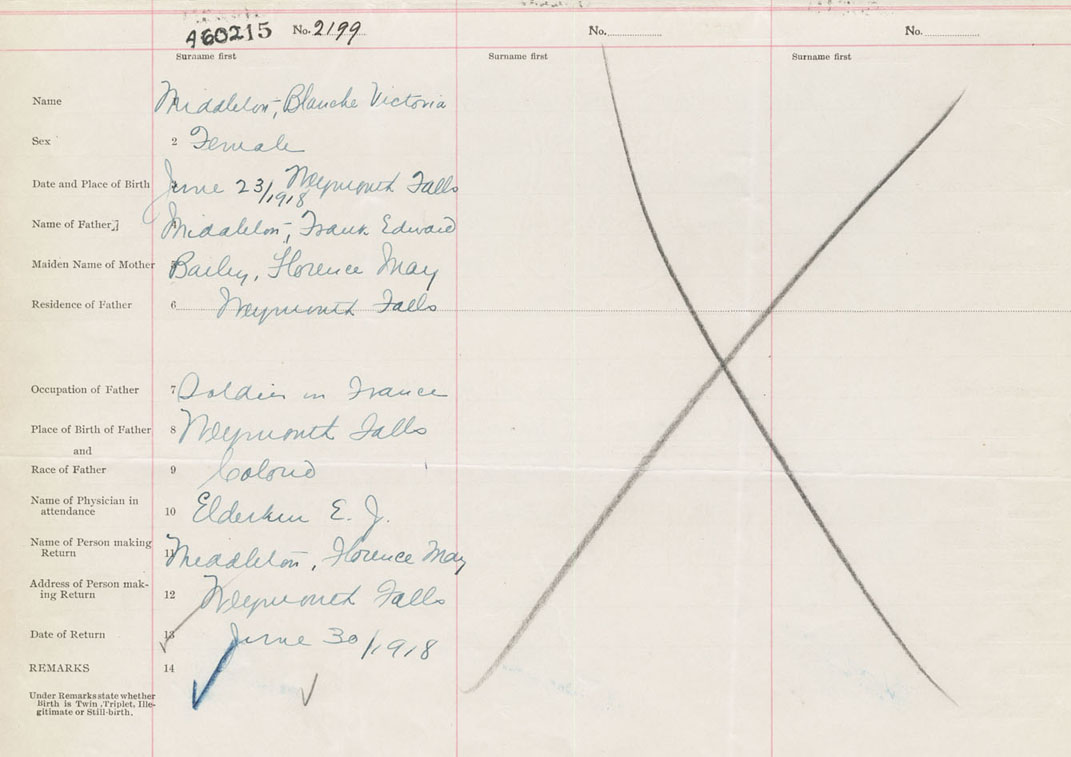 A60215 No. 2199 No. No.
Surname first Surname first Surname first
Name 1 Middleton, Blanche Victoria
Sex 2 Female
Date and Place of Birth June 23/1918 Weymouth Falls
Name of Father Middleton, Frank Edward
Maiden Name of Mother Bailey, Florence May
Residence of Father 6 Weymouth Falls
Occupation of Father 7 Soldier in France
Place of Birth of Father 8 Weymouth Falls
and
Race of Father 9 Colored
Name of Physician in
attendance 10 Elderkin E. J.
Name of Person making
Return 11 Middleton, Florence May
Address of Person mak-
ing Return 12 Weymouth Falls
Date of Return 13 June 30/1918
REMARKS 14
Under Remarks state whether
Birth is Twin, Triplet, Ille-
gitimate or Still-birth.